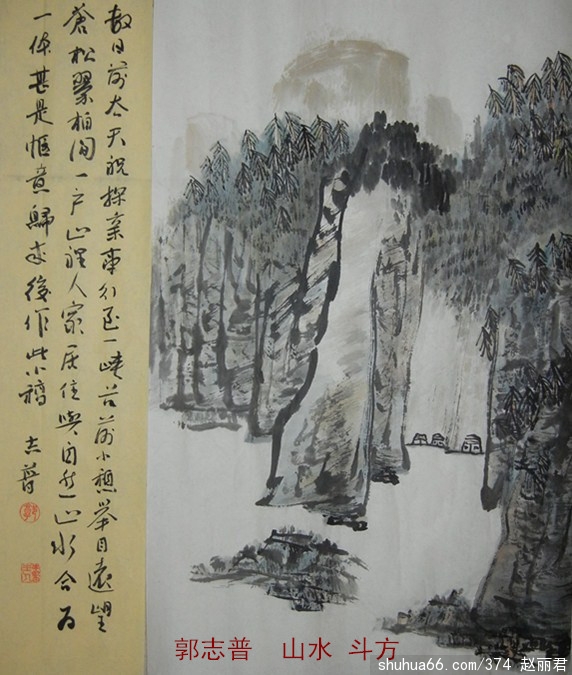 数日前去天祝探亲車行至一峡谷前小憩举目遠望
蒼松翠柏间一户山裡人家居住與自然山水合为
一体甚是惬意歸来後作此小稿 志普
郭志普 山水 斗方
shuhua66.com/374 赵丽君